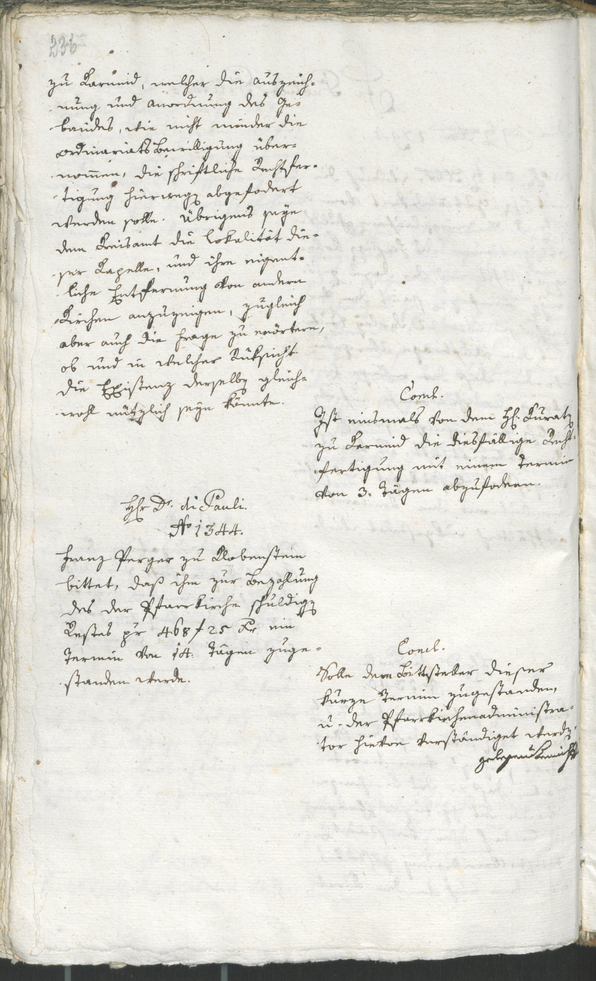 236
zu Karneid, welcher die Auszeich-
nung und Anordnung des Ge-
bäudes, wie nicht minder die
Ordinariatsbewilligung über-
nommen, die schriftliche Rechtfer-
tigung hierwegs abgefodert
werden solle. Übrigens seye
dem Kreisamt die Lokalität die-
ser Kapelle, und ihre eigent-
liche Entfernung von andern
Kirchen anzuzeigen, zugleich
aber auch die Frage zu erörtern,
ob und in welcher Rüksicht
die Existenz derselben gleich-
wohl nützlich seyn könnte.
Concl.
Ist einsmals von dem H. Kuraten
zu Karneid die diesfällige Recht-
fertigung mit einem Termin
von 3. Tägen abzufodern.
Hr Dr. di Pauli.
No 1344.
Franz Perger zu Klobenstein
bittet, daß ihm zur Bezahlung
des der Pfarrkirche schuldigen
Restes pr 468 f 25 Kr ein
Termin von 14. Tägen zuge-
standen werde.
Concl.
Solle dem Bittsteller dieser
kurze Termin zugestanden,
u. der Pfarrkirchenadministra-
tor hievon verständiget werden